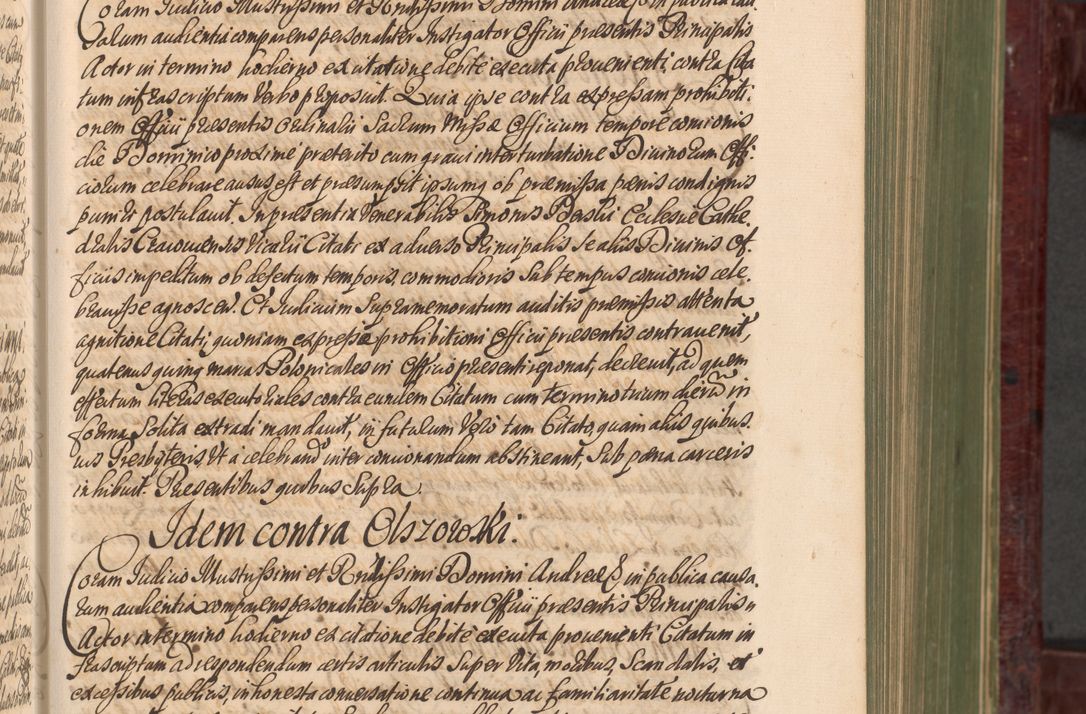 Coram Iudicio Illustrissimi et Rndissimi Domini Andreæ &c in publica cau
sarum audientia comparens personaliter Instigator Officii præsentis Principalis
Actor in termino hodierno ex citatione debite executa provenienti contra Cita
tum infrascriptum verbo proposuit. Quia ipse contra expressam prohibiti
onem Officii præsentis Ordinalii Sacrum Missæ Officium tempore concionis
die Dominico proxime præterito cum gravi interturbatione Divinorum Offi:
ciorum celebrare ausus est et præsumpsit ipsumq ob præmissa pænis condignis
puniri postulavit. In præsentia Venerabilis Simonis Ecclesiæ Cathe
dralis Cracoviensis Vicarii Citati ex adverso Principalis se aliis Divinis Of
ficiis impeditum ob defectum temporis commodioris sub tempus concionis cele
bravisse agnoscen. Et Iudicium Supramemoratum auditis præmissis attenta
agnitione Citati, quoniam expresse prohibitioni Officii præsentis contravenit,
quatenus quinq marcas Polonicales in Officio præsenti reponat, decrevit, ad quem
effectum literas executoriales contra eundem Citatum cum termino trium dierū in
forma solita extradi mandavit, in futurum vero tam Citato, quam aliis quibus
vis Presbyteris, ut a celebrand inter concionandum abstineant, sub pœna carceris
inhibuit. Præsentibus quibus supra.
Idem contra Olszowski.
Coram Iudicio Illustrissimi et Rndissimi Domini Andreæ &c in publica causa
rum audientia comparens personaliter Instigator Officii præsentis Principalis
Actor in termino hodierno ex citatione debite executa provenienti Citatum in
frascriptum ad respondendum certis articulis super vita, moribus, scandalis, et
excessibus publicis, inhonesta conversatione continua ac familiaritate nocturna